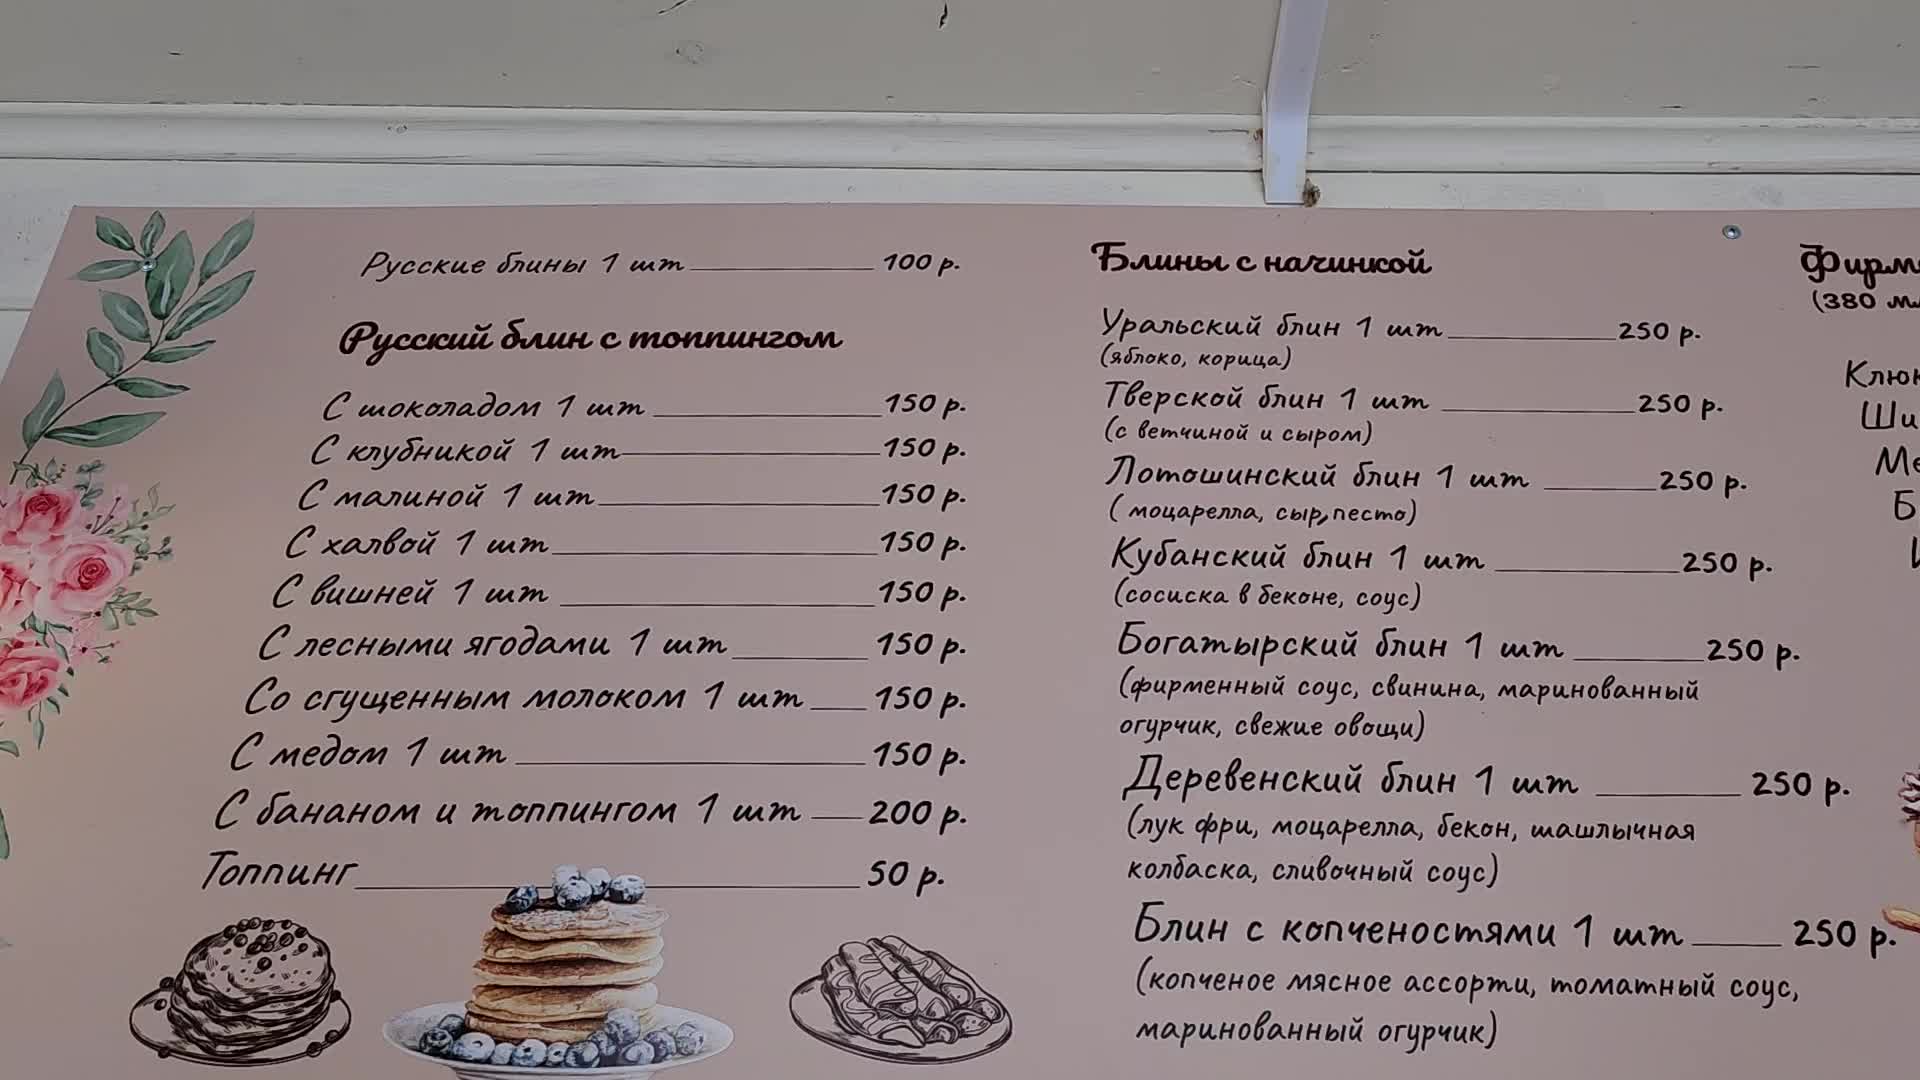 Русские блины 1 шт 100 р.
Русский блин с топпингом
С шоколадом 1 шт 150 р.
С клубникой 1 шт 150 р.
С малиной 1 шт 150 р.
С халвой 1 шт 150 р.
С вишней 1 шт 150 р.
С лесными ягодами 1 шт 150 р.
Со сгущенным молоком 1 шт 150 р.
С медом 1 шт 150 р.
С бананом и топпингом 1 шт 200 р.
Топпинг 50 р.
Блины с начинкой
Уральский блин 1 шт 250 р.
(яблоко, корица)
Тверской блин 1 шт 250 р.
(с ветчиной и сыром)
Лотошинский блин 1 шт 250 р.
( моцарелла, сыр, песто)
Кубанский блин 1 шт 250 р.
(сосиска в беконе, соус)
Богатырский блин 1 шт 250 р.
(фирменный соус, свинина, маринованный
огурчик, свежие овощи)
Деревенский блин 1 шт 250 р.
(лук фри, моцарелла, бекон, шашлычная
колбаска, сливочный соус)
Блин с копченостями 1 шт 250 р.
(копченое мясное ассорти, томатный соус,
маринованный огурчик)
(380